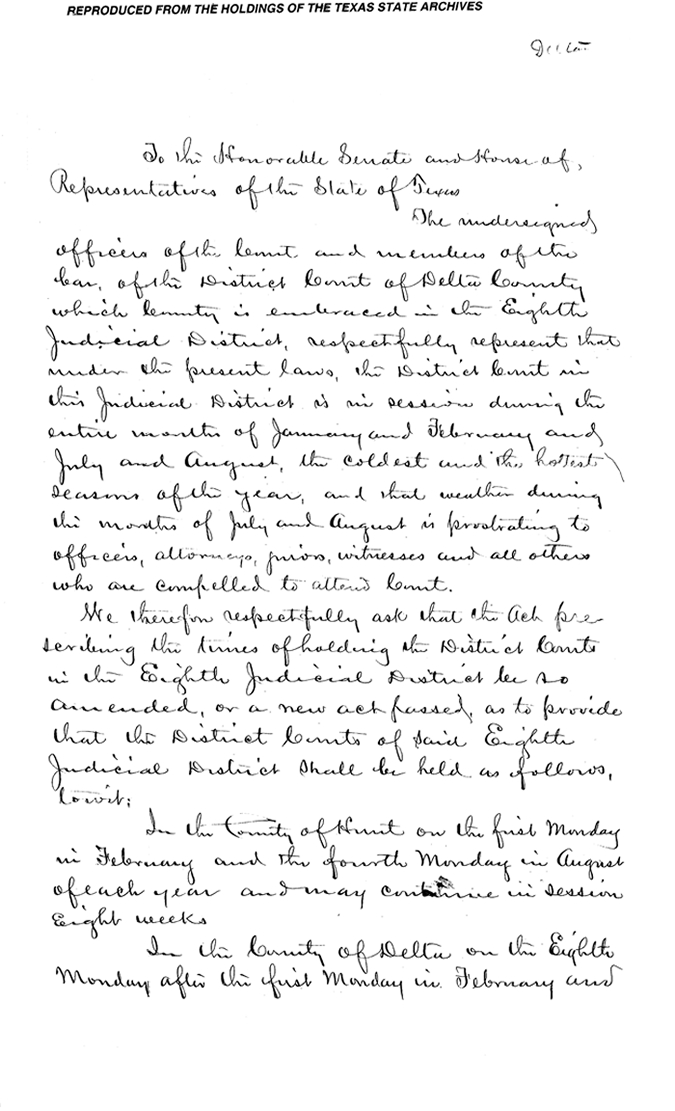 REPRODUCED FROM THE HOLDINGS OF THE TEXAS STATE ARCHIVES
Delta
To the Honorable Senate and House of,
Representatives of the State of Texas
The undersigned
officers of the Court and members of the
bar, of the District Court of Delta County
which County is embraced in the Eighth
Judicial District, respectfully represent that
under the present laws, the District Court in
this Judicial District is in session during the
entire months of January and February and
July and August, the coldest and the hottest
seasons of the year, and that weather during
the months of July and August is prostrating to
officers, attorneys, jurors, witnesses and all others
who are compelled to attend Court.
We therefore respectfully ask that the Act pre-
scribing the times of holding the District Courts
in the Eighth Judicial District be so
amended, or a new act passed, as to provide
that the District Courts of said Eighth
Judicial District shall be held as follows,
towit;
In the County of Hunt on the first Monday
in February and the fourth Monday in August
of each year and may continue in session
Eight weeks
In the County of Delta on the Eighth
Monday after the first Monday in February and